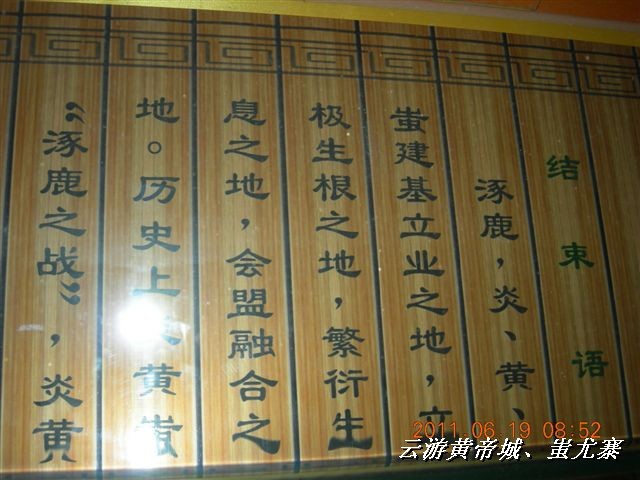 结束语
涿鹿，炎、黄、
蚩建基立业之地，立
极生根之地，繁衍生
息之地，会盟融合之
地。历史上炎黄蚩
“涿鹿之战”，炎黄
2011.06.19 08:52
云游黄帝城、蚩尤寨